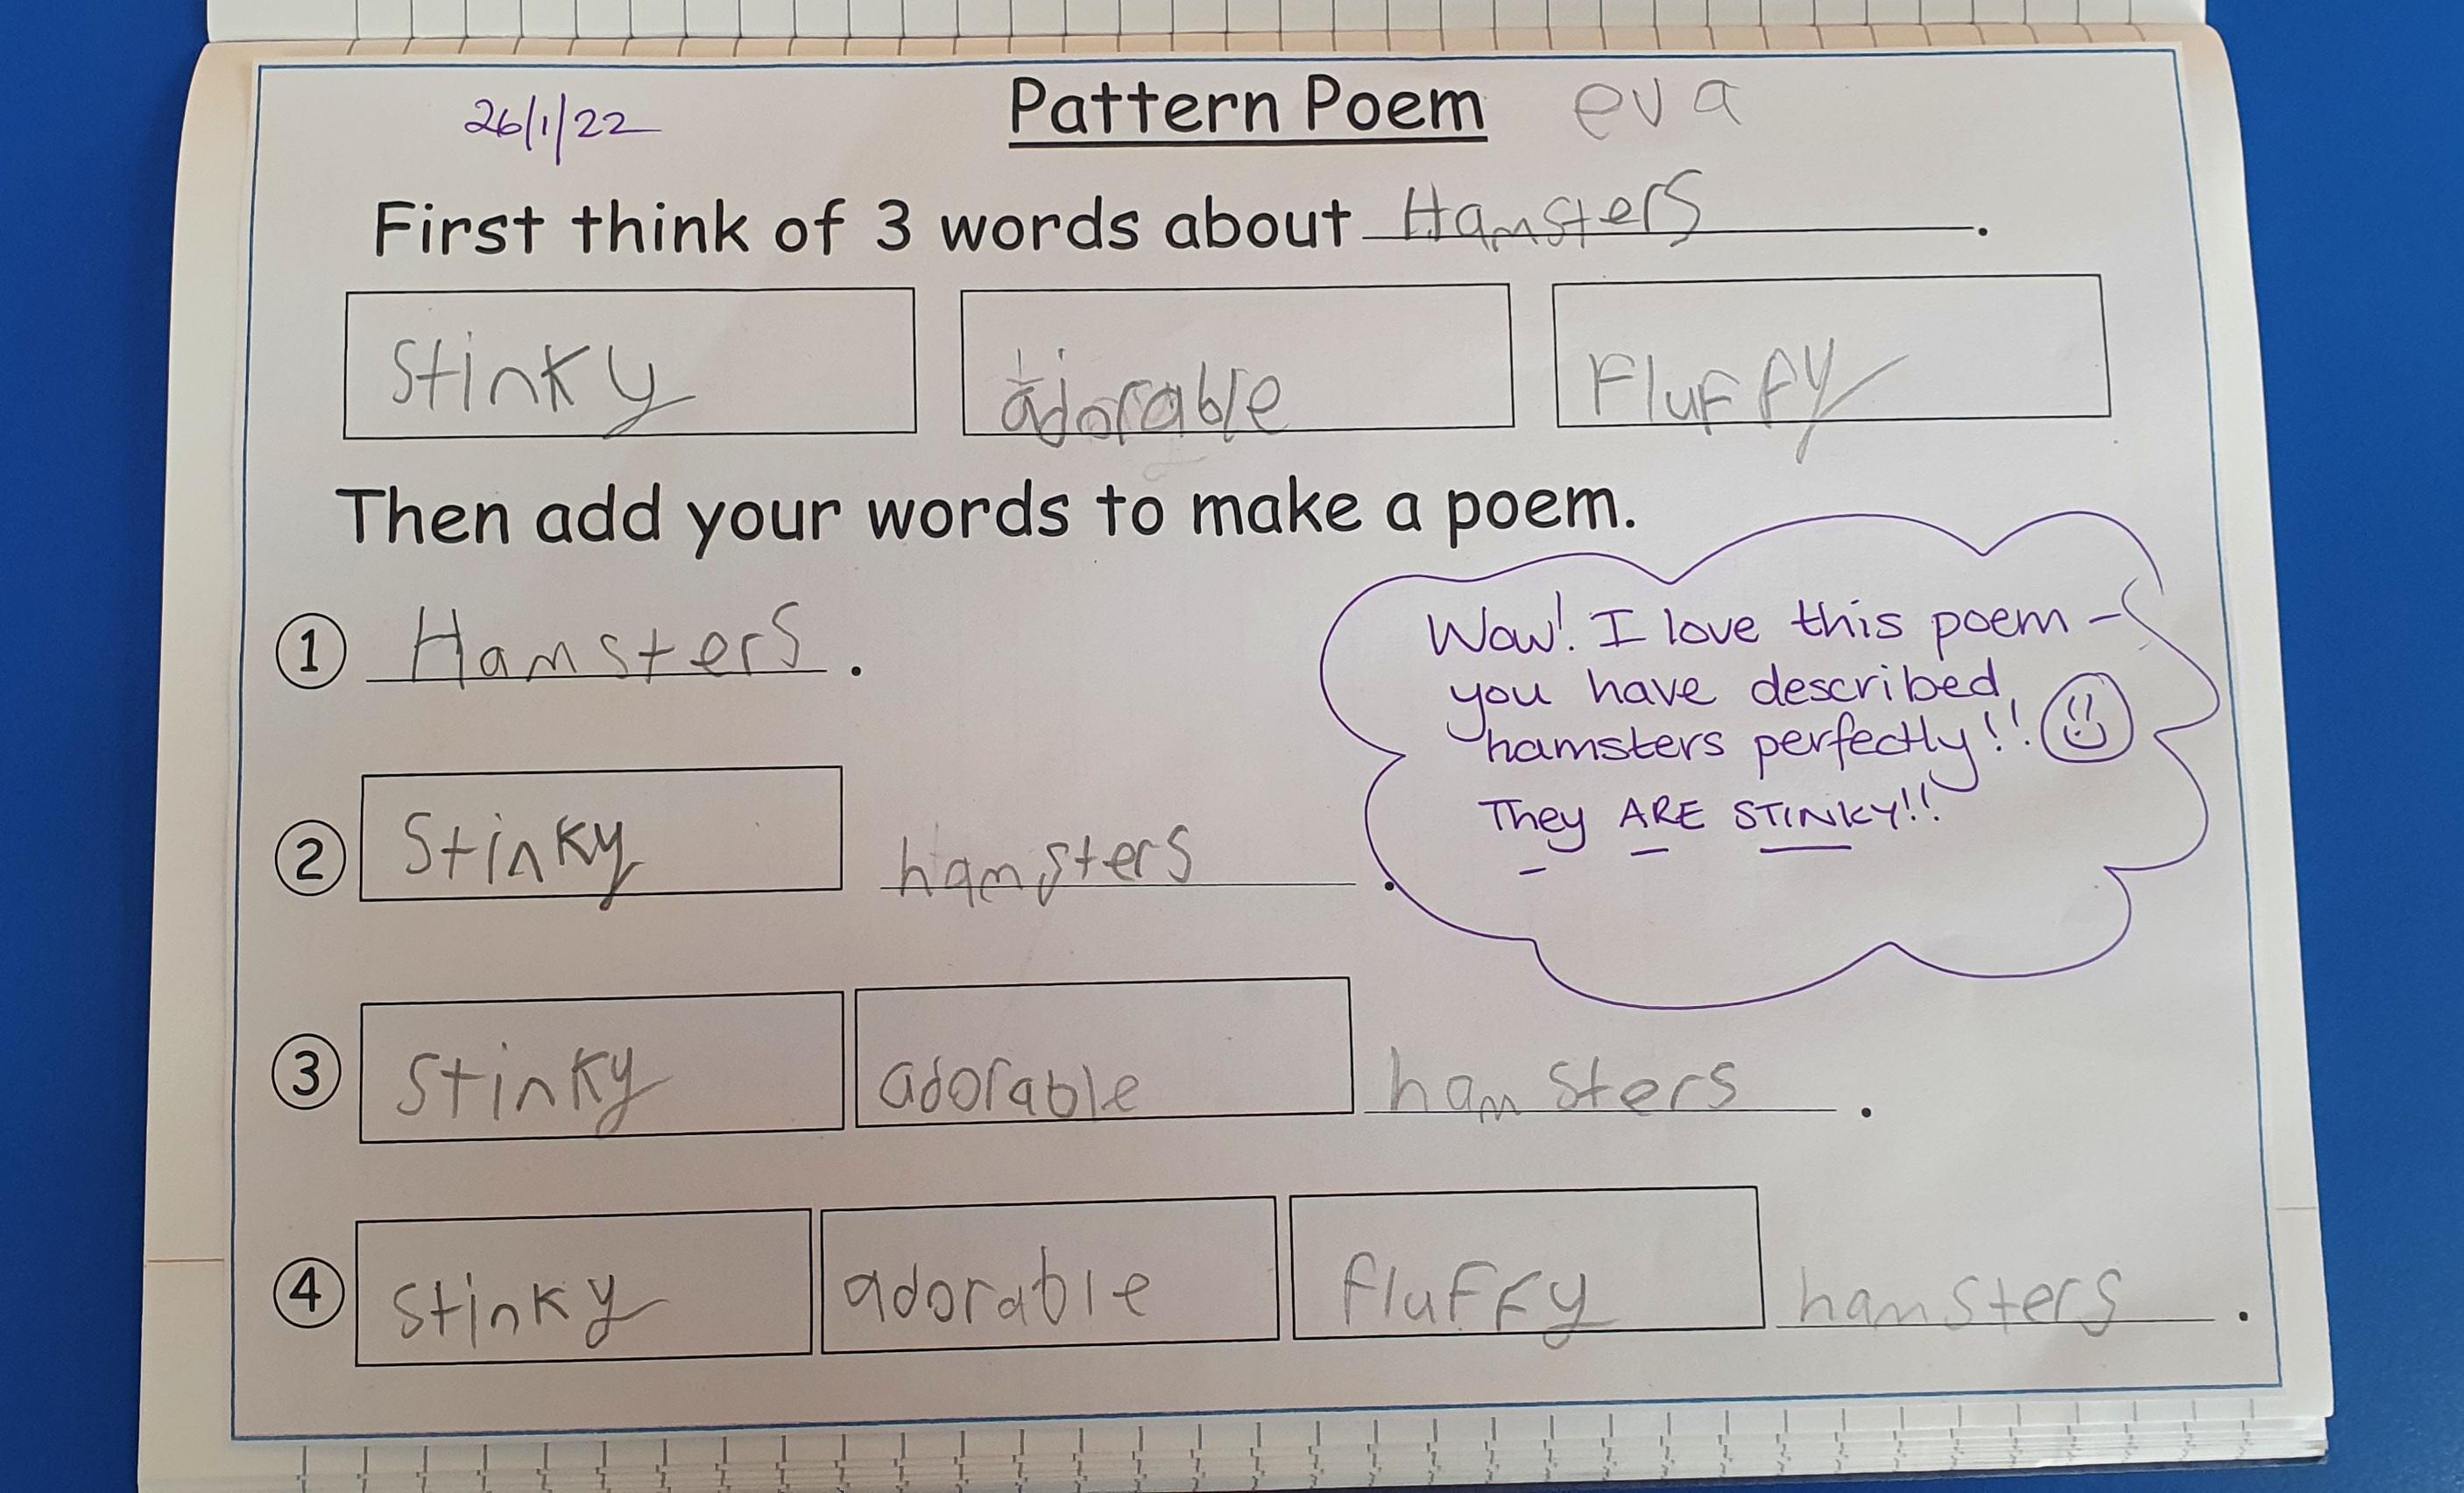 26/1/22 Pattern Poem eva
First think of 3 words about Hamsters.
Stinky adorable Fluffy
Then add your words to make a poem.
① Hamsters.
Wow! I love this poem -
you have described
hamsters perfectly!!
They ARE STINKY!!
② Stinky hamsters.
③ Stinky adorable hamsters.
④ Stinky adorable fluffy hamsters.